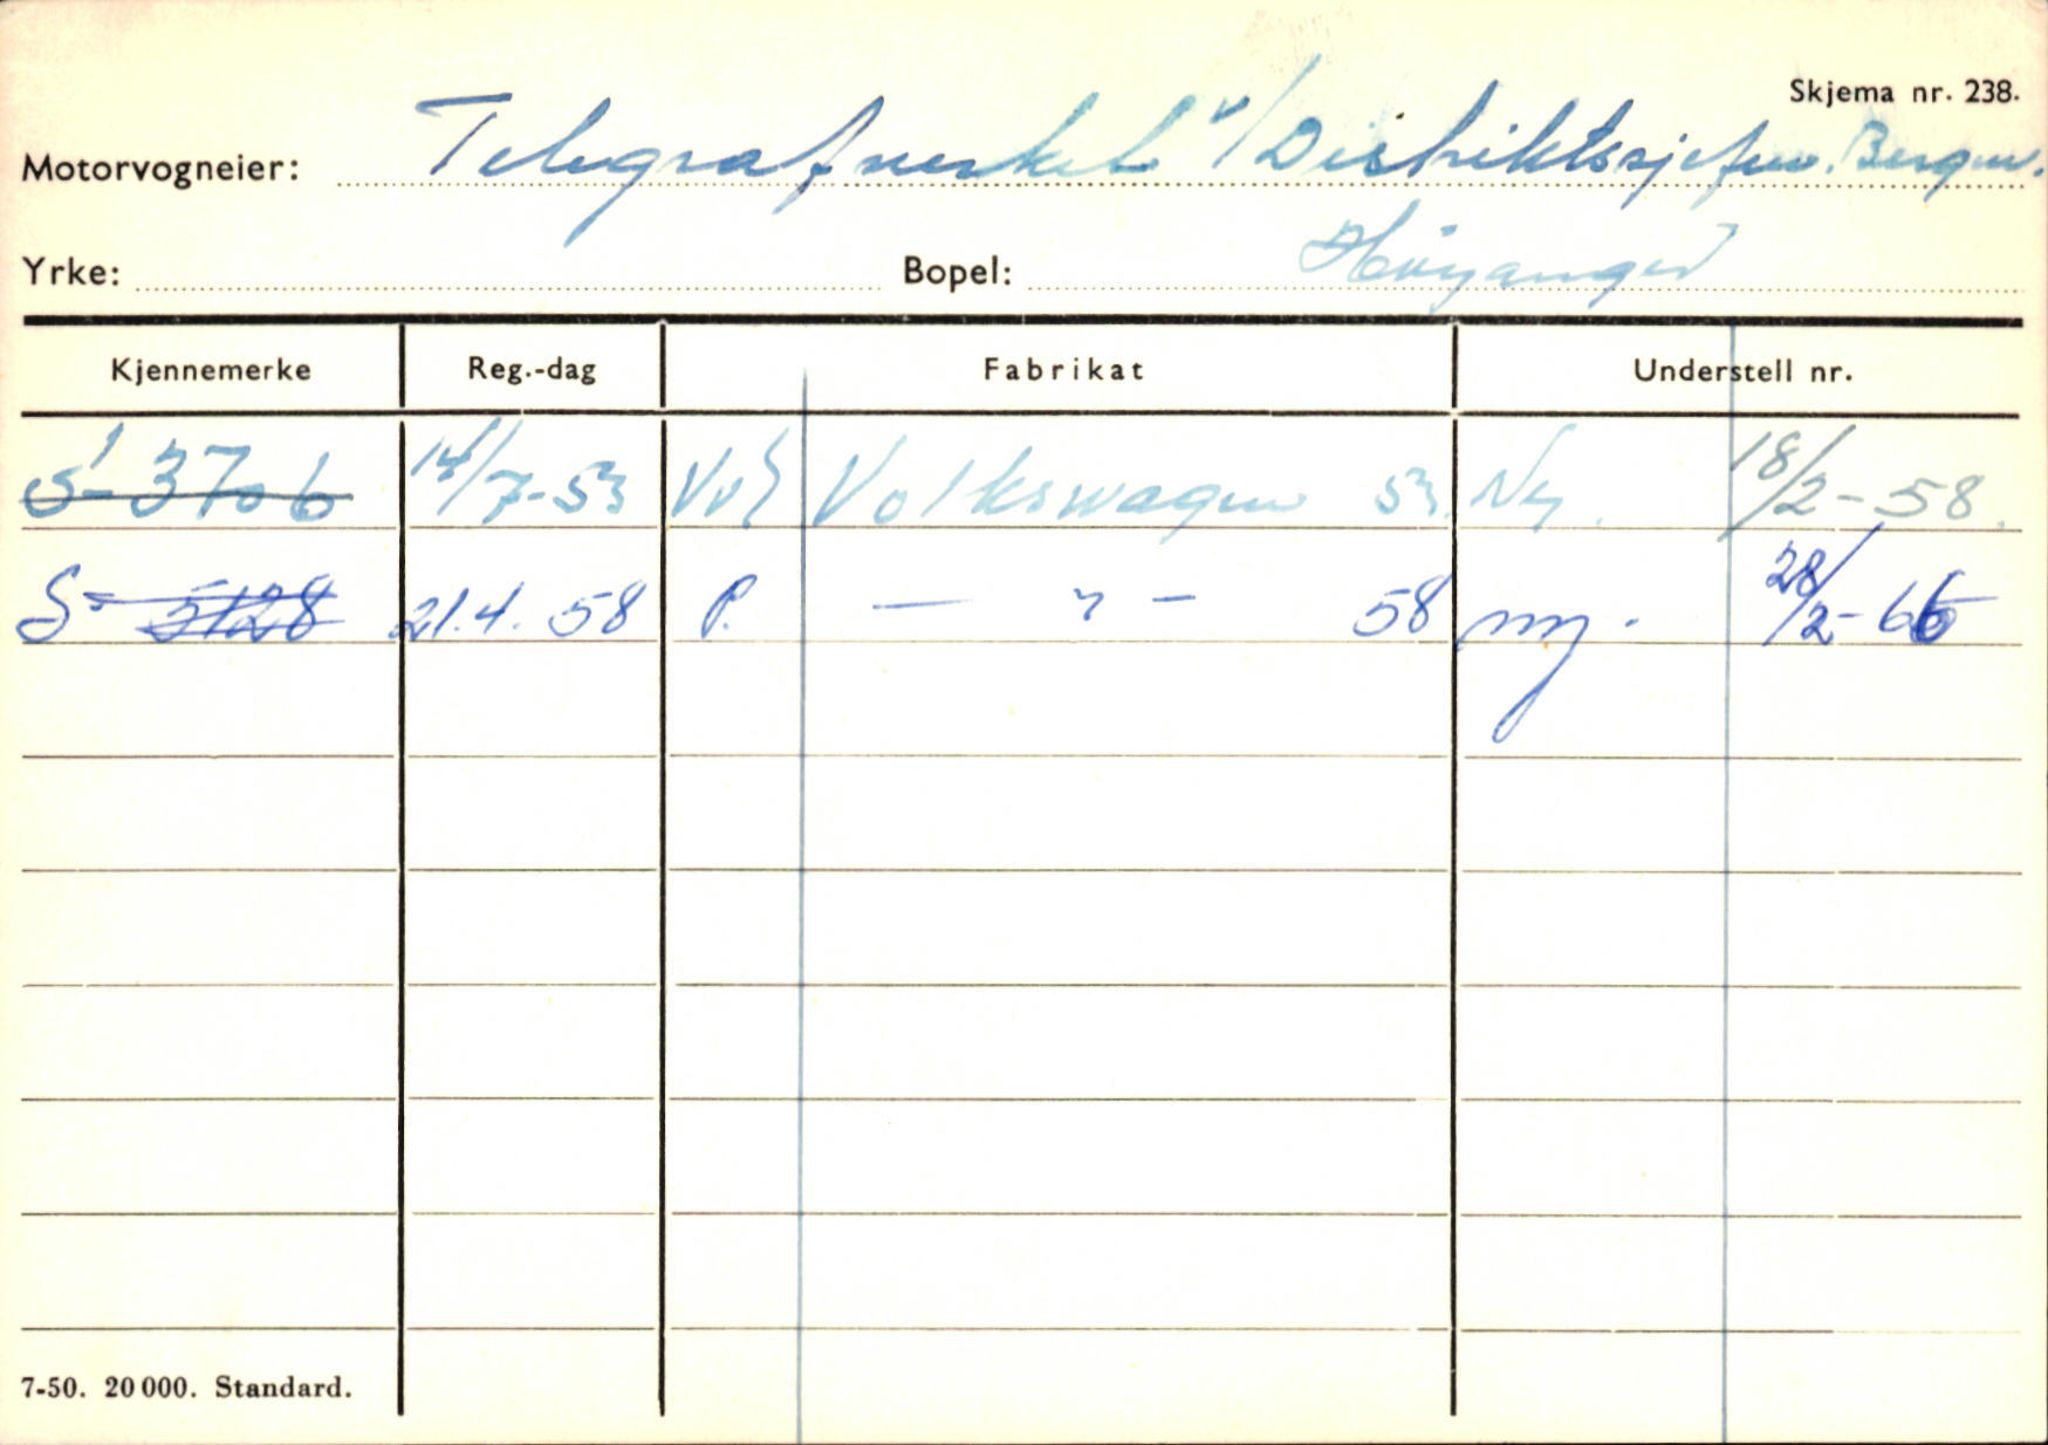 Skjema nr. 238.
Motorvogneier: Telegrafverket v/Distriktssjefen. Bergen.
Yrke: Bopel: Höyanger
Kjennemerke Reg.-dag Fabrikat Understell nr.
S-3706 14/7-53 Volkswagen 53. Ny. 18/2-58.
S- 5128 21.4.58 P. — " — 58 ny. 28/2-66
7-50. 20 000. Standard.